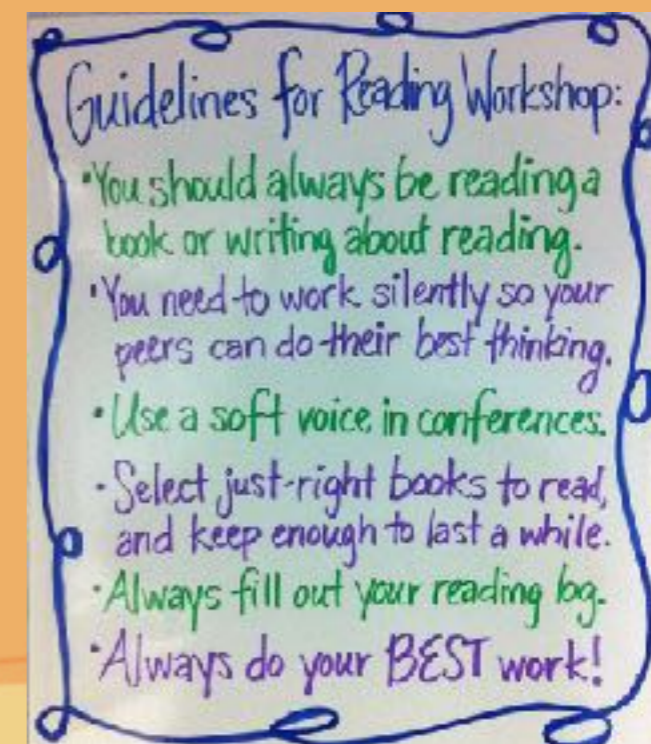 Guidelines for Reading Workshop:
•You should always be reading a
book or writing about reading.
•You need to work silently so your
peers can do their best thinking.
•Use a soft voice in conferences.
•Select just-right books to read,
and keep enough to last a while.
•Always fill out your reading log.
•Always do your BEST work!